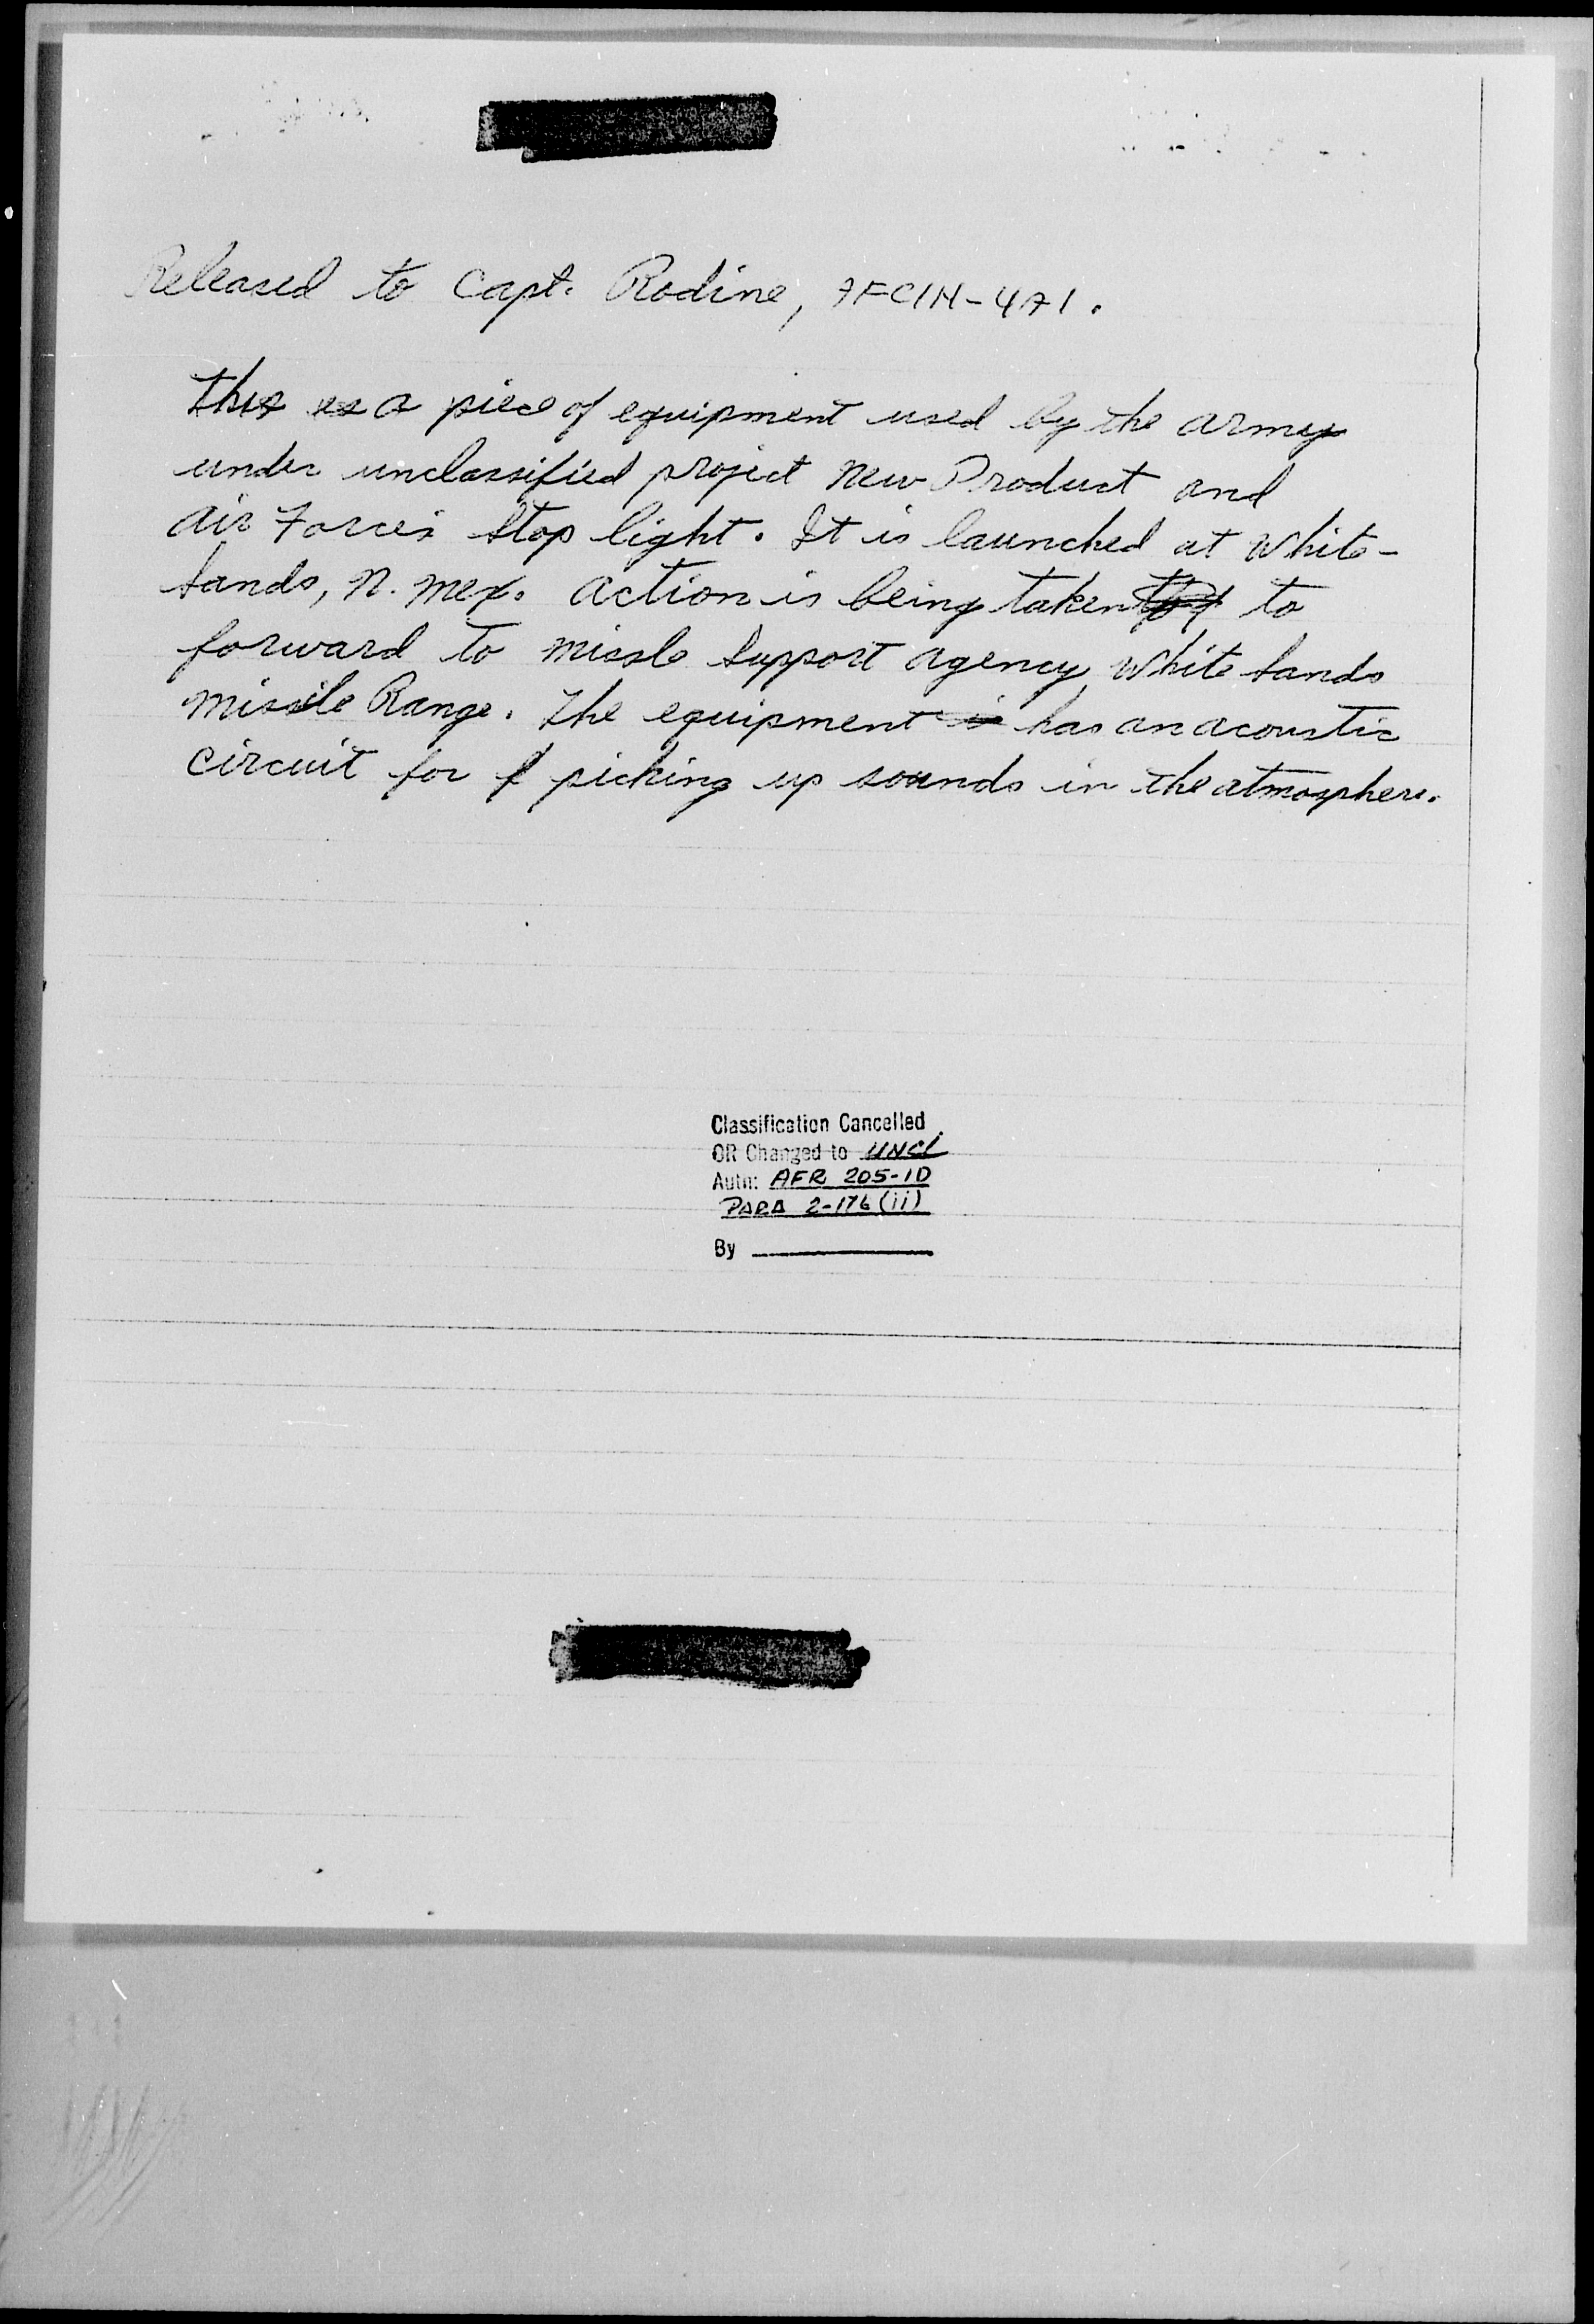 Released to Capt. Rodine, AFCIN-4A1.
This is a piece of equipment used by the army
under unclassified project New Product and
Air Force's Stop light. It is launched at White-
Sands, N. Mex. Action is being taken to
forward to missle Support agency, White Sands
Missile Range. The equipment is has an acoustic
circuit for f picking up sounds in the atmosphere.
Classification Cancelled
OR Changed to UNCL
Auth: AFR 205-1D
PARA 2-176 (ii)
By